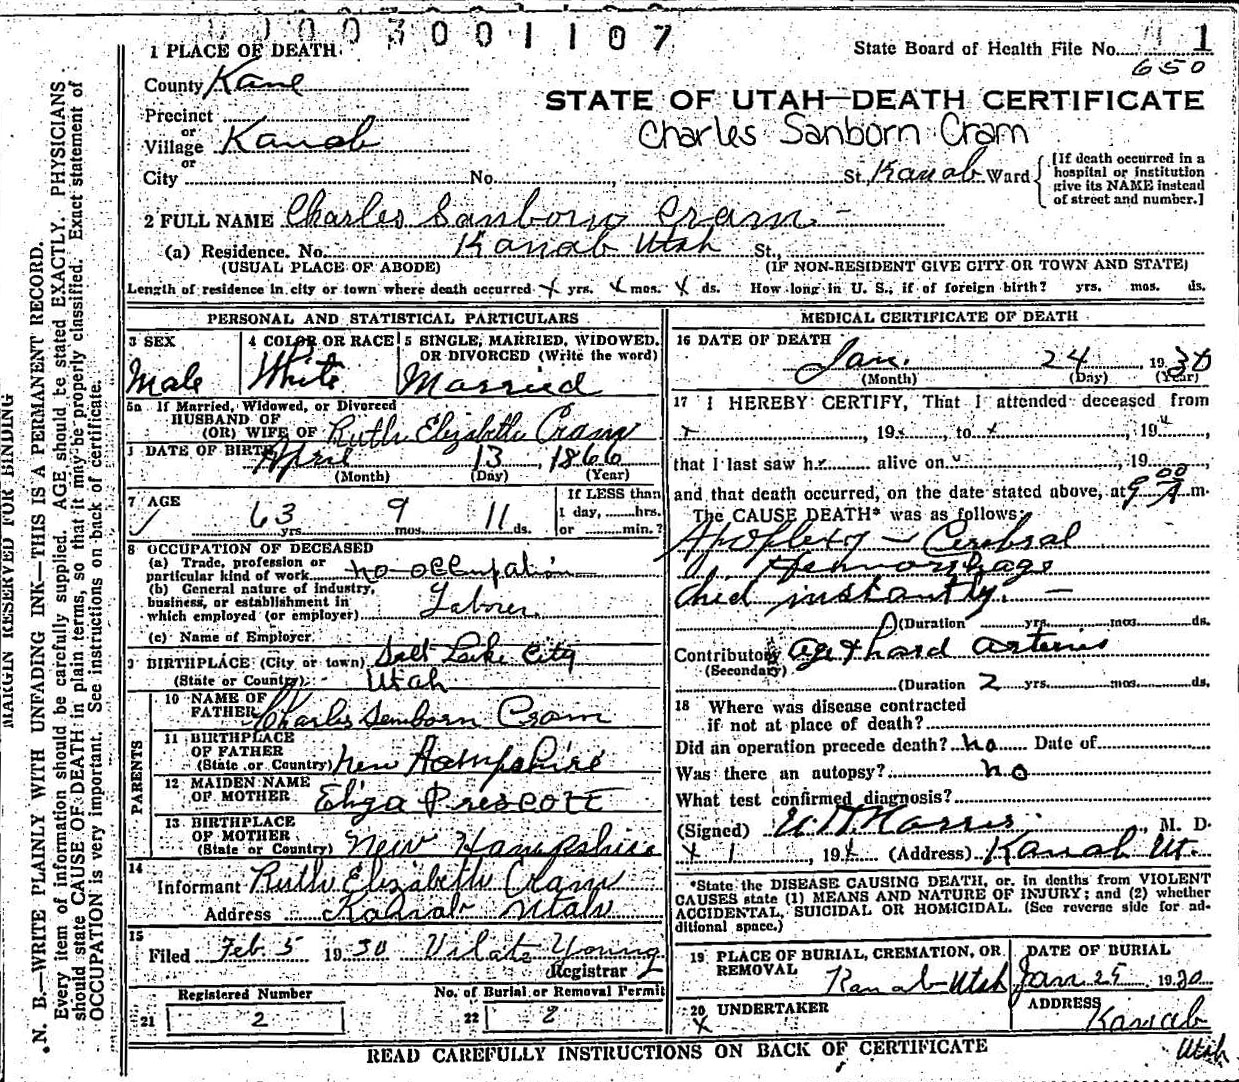 0003001107
1 PLACE OF DEATH
State Board of Health File No. 1
650
County Kane
STATE OF UTAH—DEATH CERTIFICATE
Precinct
or
Village Kanab
Charles Sanborn Cram
or
City No. St. Kanab Ward
[If death occurred in a hospital or institution give its NAME instead of street and number.]
2 FULL NAME Charles Sanborn Cram
(a) Residence. No. Kanab Utah St.,
(USUAL PLACE OF ABODE) (IF NON-RESIDENT GIVE CITY OR TOWN AND STATE)
Length of residence in city or town where death occurred x yrs. x mos. x ds. How long in U. S., if of foreign birth? yrs. mos. ds.
PERSONAL AND STATISTICAL PARTICULARS
3 SEX Male
4 COLOR OR RACE White
5 SINGLE, MARRIED, WIDOWED, OR DIVORCED (Write the word) Married
5a If Married, Widowed, or Divorced
HUSBAND OF
(OR) WIFE OF Ruth Elizabeth Cram
DATE OF BIRTH April 13, 1866
(Month) (Day) (Year)
7 AGE 63 yrs. 9 mos. 11 ds.
If LESS than
1 day, hrs.
or min.?
8 OCCUPATION OF DECEASED
(a) Trade, profession or
particular kind of work no occupation
(b) General nature of industry,
business, or establishment in
which employed (or employer) Laborer
(c) Name of Employer
9 BIRTHPLACE (City or town) Salt Lake City
(State or Country) Utah
PARENTS
10 NAME OF
FATHER Charles Senborn Cram
11 BIRTHPLACE
OF FATHER
(State or Country) New Hampshire
12 MAIDEN NAME
OF MOTHER Eliza Prescott
13 BIRTHPLACE
OF MOTHER
(State or Country) New Hampshire
14
Informant Ruth Elizabeth Cram
Address Kanab Utah
15
Filed Feb. 5 1930 Vilate Young
Registrar
Registered Number
21 2
No. of Burial or Removal Permit
22 2
MEDICAL CERTIFICATE OF DEATH
16 DATE OF DEATH
Jan. 24 1930
(Month) (Day) (Year)
17 I HEREBY CERTIFY, That I attended deceased from
x, 19x, to x, 19x,
that I last saw h alive on, 19
and that death occurred, on the date stated above, at 9 00 A m.
The CAUSE DEATH* was as follows:
Apoplexy — Cerebral
Hemorrhage
died instantly. —
(Duration yrs. mos. ds.
Contributory age & hard arteries
(Secondary)
(Duration 2 yrs. mos. ds.
18 Where was disease contracted
if not at place of death?
Did an operation precede death? no Date of
Was there an autopsy? no
What test confirmed diagnosis?
(Signed) Norris, M. D.
x 1, 19x (Address) Kanab Ut.
*State the DISEASE CAUSING DEATH, or in deaths from VIOLENT
CAUSES state (1) MEANS AND NATURE OF INJURY; and (2) whether
ACCIDENTAL, SUICIDAL OR HOMICIDAL. (See reverse side for additional space.)
19 PLACE OF BURIAL, CREMATION, OR
REMOVAL Kanab Utah
DATE OF BURIAL
Jan 25 1930
20 UNDERTAKER
x
ADDRESS
Kanab
Utah
READ CAREFULLY INSTRUCTIONS ON BACK OF CERTIFICATE
MARGIN RESERVED FOR BINDING
N. B.—WRITE PLAINLY WITH UNFADING INK—THIS IS A PERMANENT RECORD.
Every item of information should be carefully supplied. AGE should be stated EXACTLY. PHYSICIANS
should state CAUSE OF DEATH in plain terms, so that it may be properly classified. Exact statement of
OCCUPATION is very important. See instructions on back of certificate.